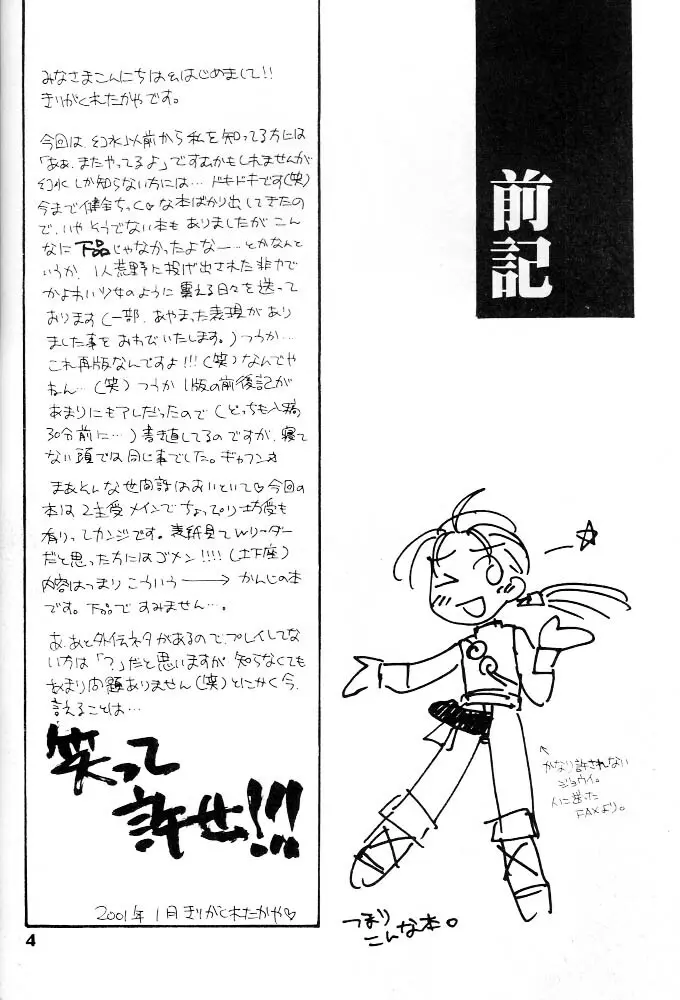 前記
みなさまこんにちは&はじめまして!!
きりがくれたかやです。
今回は、幻水以前から私を知ってる方には
「ああ、またやってるよ」ですむかもしれませんが
幻水しか知らない方には…ドキドキです(笑)
今まで健全ちっく♡な本ばかり出してきたの
で、いやそうでない本もありましたがこん
なに下品じゃなかったよなー…とかなんと
いうか、1人荒野に投げ出された非力で
かよわい少女のように震える日々を送って
おります(一部、あやまった表現があり
ました事をおわびいたします。)つうか…
これ再版なんですよ!!!(笑)なんでや
ねん…(笑)つうか1版の前後記が
あまりにもアレだったので(どっちも入稿
30分前に…)書き直してるのですが、寝て
ない頭では同じ事でした。ギャフン
まあそんな世間話はおいといて♡今回の
本は2主受メインでちょっぴり坊受も
有りってカンジです。表紙見てWリーダー
だと思った方にはゴメン!!!!(土下座)
内容はつまりこういう→かんじの本
です。下品ですみません…。
あ、あと外伝ネタがあるので、プレイしてな
い方は「?」だと思いますが知らなくても
あまり問題ありません(笑)とにかく今、
言えることは…
笑って
許せ!!!
2001年1月きりがくれたかや♡
4
↖
かなり許されない
ジョウイ。
人に送った
FAXより。
つまり
こんな本。